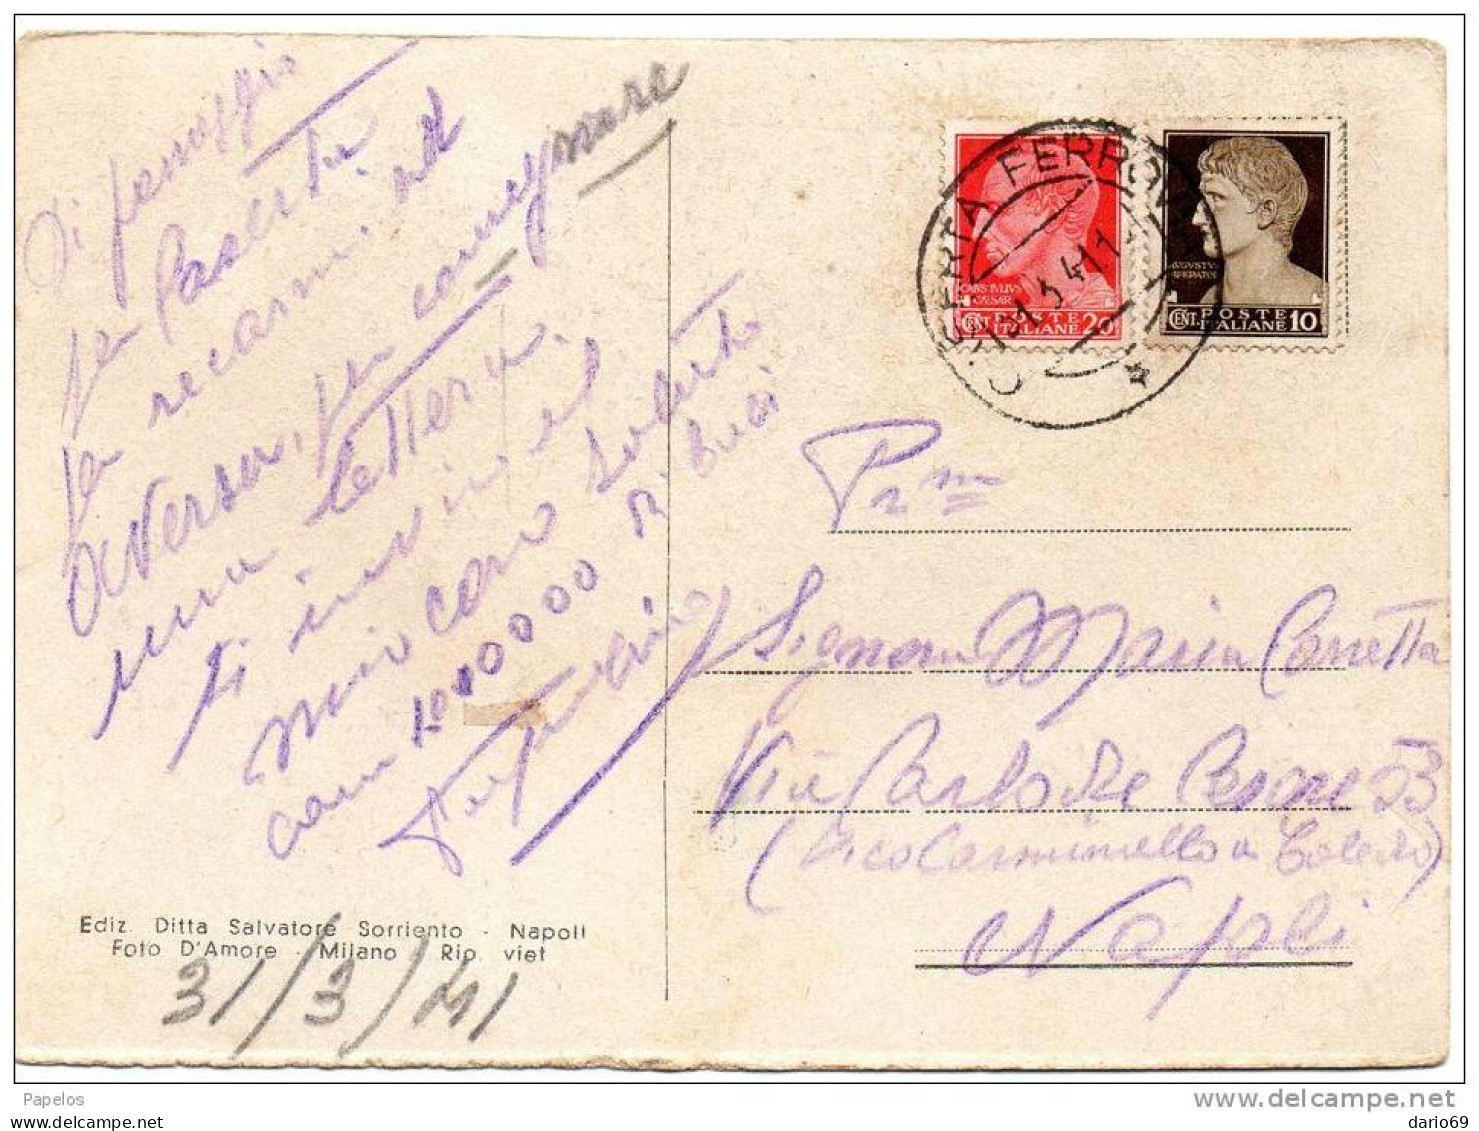 Di passaggio
per Caserta
per recarmi ad
Aversa, per consegnare
una lettera.
Ti invio il
mio caro saluto
con 1000000 di baci
Prm
Signora Maria Carretta
Via Carlo De Cesare 53
(Vico Carminiello a Toledo)
Napoli
CASERTA FERROVIA
31.3.41
CAIVS IVLIVS
CAESAR
CENT. POSTE
ITALIANE 20
AVGVSTVS
IMPERATOR
CENT. POSTE
ITALIANE 10
Ediz. Ditta Salvatore Sorriento - Napoli
Foto D'Amore - Milano - Rip. viet
31/3/41
Papelos
www.delcampe.net
vendredi 22 août 2014
dario69